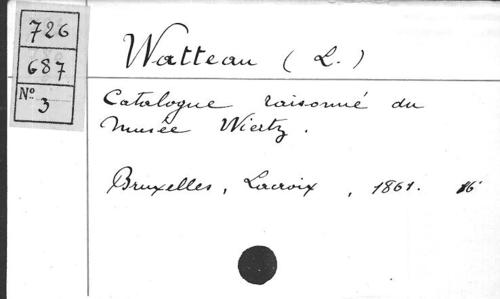 726
687
Nº
3
Watteau (L.)
Catalogue raisonné du
Musée Wiertz.
Bruxelles, Lacroix, 1861. 16°